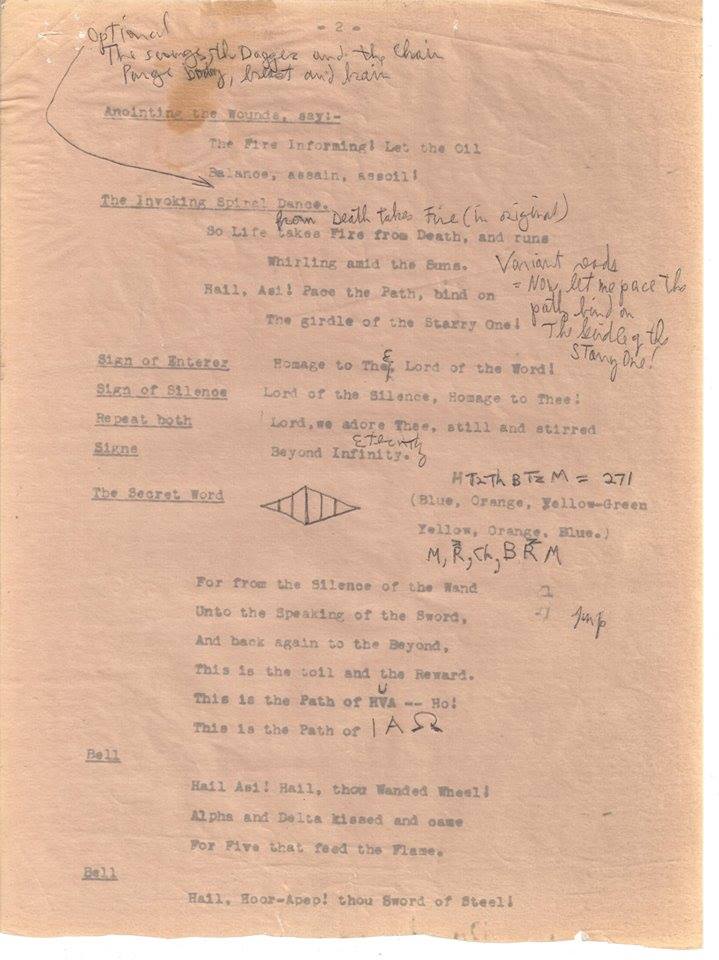 - 2 -
Optional
The scourge, the Dagger and the Chain
Purge body, breast and brain
Anointing the Wounds, say:-
The Fire Informing! Let the Oil
Balance, assain, assoil!
The Invoking Spiral Dance.
from Death takes Fire (in original)
So Life takes Fire from Death, and runs
Whirling amid the Suns.
Variant reads
= Now let me pace the
path, bind on
The Girdle of the
Starry One!
Hail, Asi! Pace the Path, bind on
The girdle of the Starry One!
Sign of Enterer Homage to Thee, Lord of the Word!
Sign of Silence Lord of the Silence, Homage to Thee!
Repeat both Lord, we adore Thee, still and stirred
Eternity
Signs Beyond Infinity.
= 271
The Secret Word (Blue, Orange, Yellow-Green
Yellow, Orange, Blue.)
For from the Silence of the Wand
Unto the Speaking of the Sword,
And back again to the Beyond,
This is the toil and the Reward.
U
This is the Path of HVA -- Ho!
This is the Path of I A Ω
Bell
Hail Asi! Hail, thou Wanded Wheel!
Alpha and Delta kissed and came
For Five that feed the Flame.
Bell
Hail, Hoor-Apep! thou Sword of Steel!